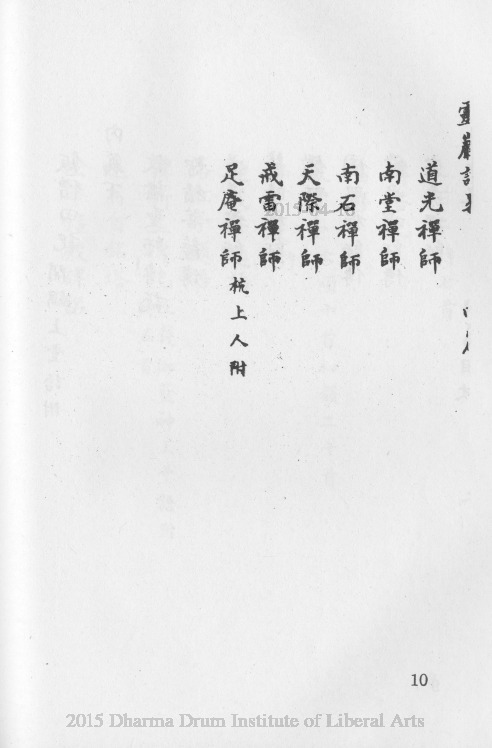 靈巖記畧
道光禪師
南堂禪師
南石禪師
天際禪師
戒雷禪師
足庵禪師 梳上人附
2015-04-10
10
2015 Dharma Drum Institute of Liberal Arts